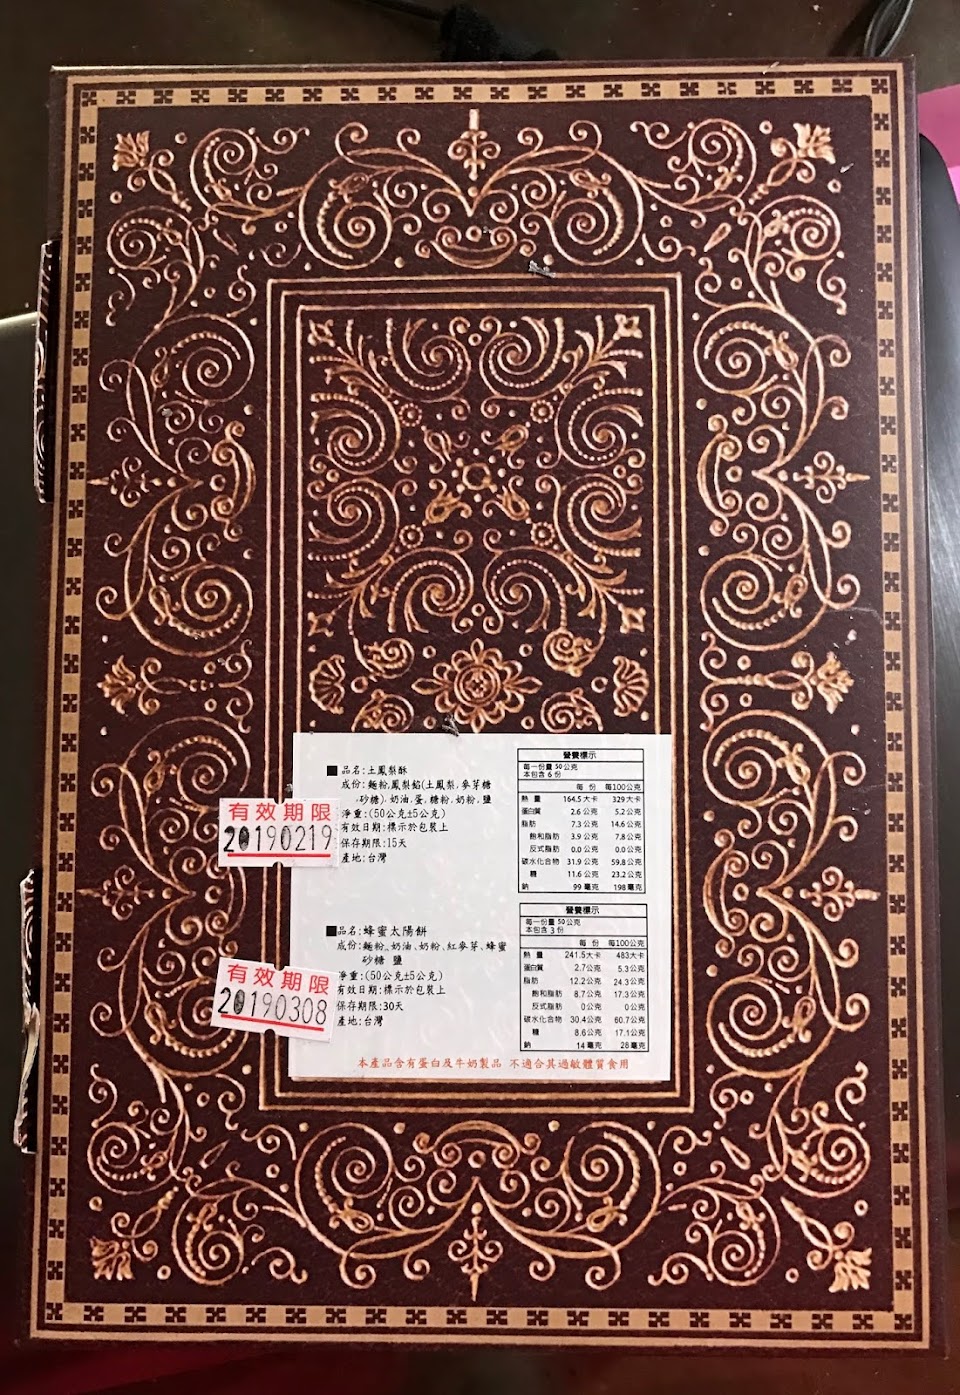 ■品名:土鳳梨酥
成份:麵粉,鳳梨餡(土鳳梨,麥芽糖
,砂糖).奶油,蛋,糖粉,奶粉,鹽
淨重:(50公克±5公克)
有效日期:標示於包裝上
保存期限:15天
產地:台灣
有效期限
20190219
營養標示
每一份量 50 公克
本包含 6 份
每 份 每100公克
熱 量 164.5大卡 329大卡
蛋白質 2.6 公克 5.2 公克
脂肪 7.3 公克 14.6 公克
飽和脂肪 3.9 公克 7.8 公克
反式脂肪 0.0 公克 0.0 公克
碳水化合物 31.9 公克 59.8 公克
糖 11.6 公克 23.2 公克
鈉 99 毫克 198 毫克
■品名:蜂蜜太陽餅
成份:麵粉、奶油、奶粉、紅麥芽、蜂蜜
砂糖 鹽
淨重:(50公克±5公克)
有效日期:標示於包裝上
保存期限:30天
產地:台灣
有效期限
20190308
營養標示
每一份量 50 公克
本包含 3 份
每 份 每100公克
熱 量 241.5大卡 483大卡
蛋白質 2.7公克 5.3 公克
脂肪 12.2公克 24.3 公克
飽和脂肪 8.7公克 17.3 公克
反式脂肪 0 公克 0 公克
碳水化合物 30.4公克 60.7公克
糖 8.6公克 17.1公克
鈉 14 毫克 28 毫克
本產品含有蛋白及牛奶製品 不適合其過敏體質食用